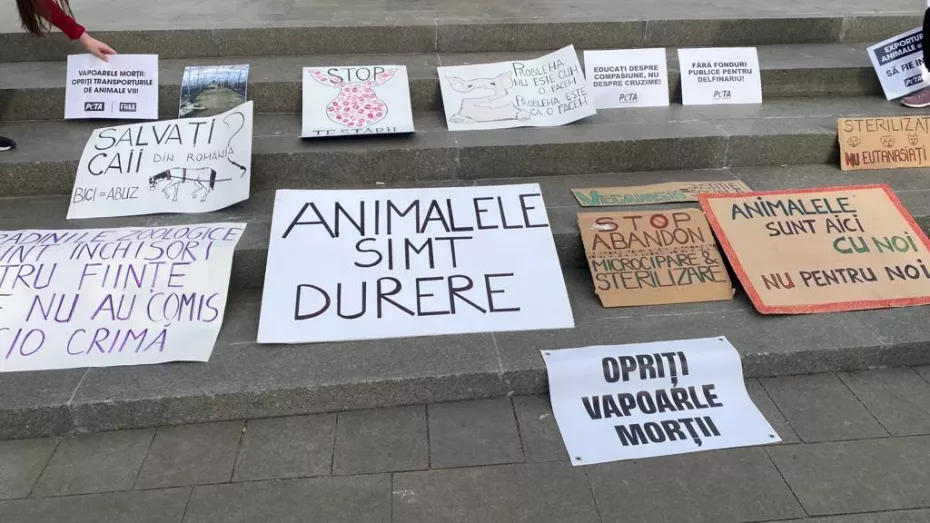 VAPOARELE MORȚII:
OPRIȚI TRANSPORTURILE
DE ANIMALE VII!
PETA
FREE
STOP
TESTĂRII
PROBLEMA
NU ESTE CUM
O FACEM!
PROBLEMA ESTE
CĂ O FACEM!
EDUCAȚI DESPRE
COMPASIUNE, NU
DESPRE CRUZIME!
PETA
FĂRĂ FONDURI
PUBLICE PENTRU
DELFINARIU!
PETA
ANIMALE
SALVAȚI
CAII DIN ROMÂNIA
BICI = ABUZ
STERILIZAȚI
NU EUTANASIAȚI
ZOOLOGICE
ÎNCHISORI
FIINȚE
NU AU COMIS
CRIMĂ
ANIMALELE
SIMT
DURERE
STOP
ABANDON
MICROCIPARE &
STERILIZARE
ANIMALELE
SUNT AICI
CU NOI
NU PENTRU NOI
OPRIȚI
VAPOARLE
MORȚII